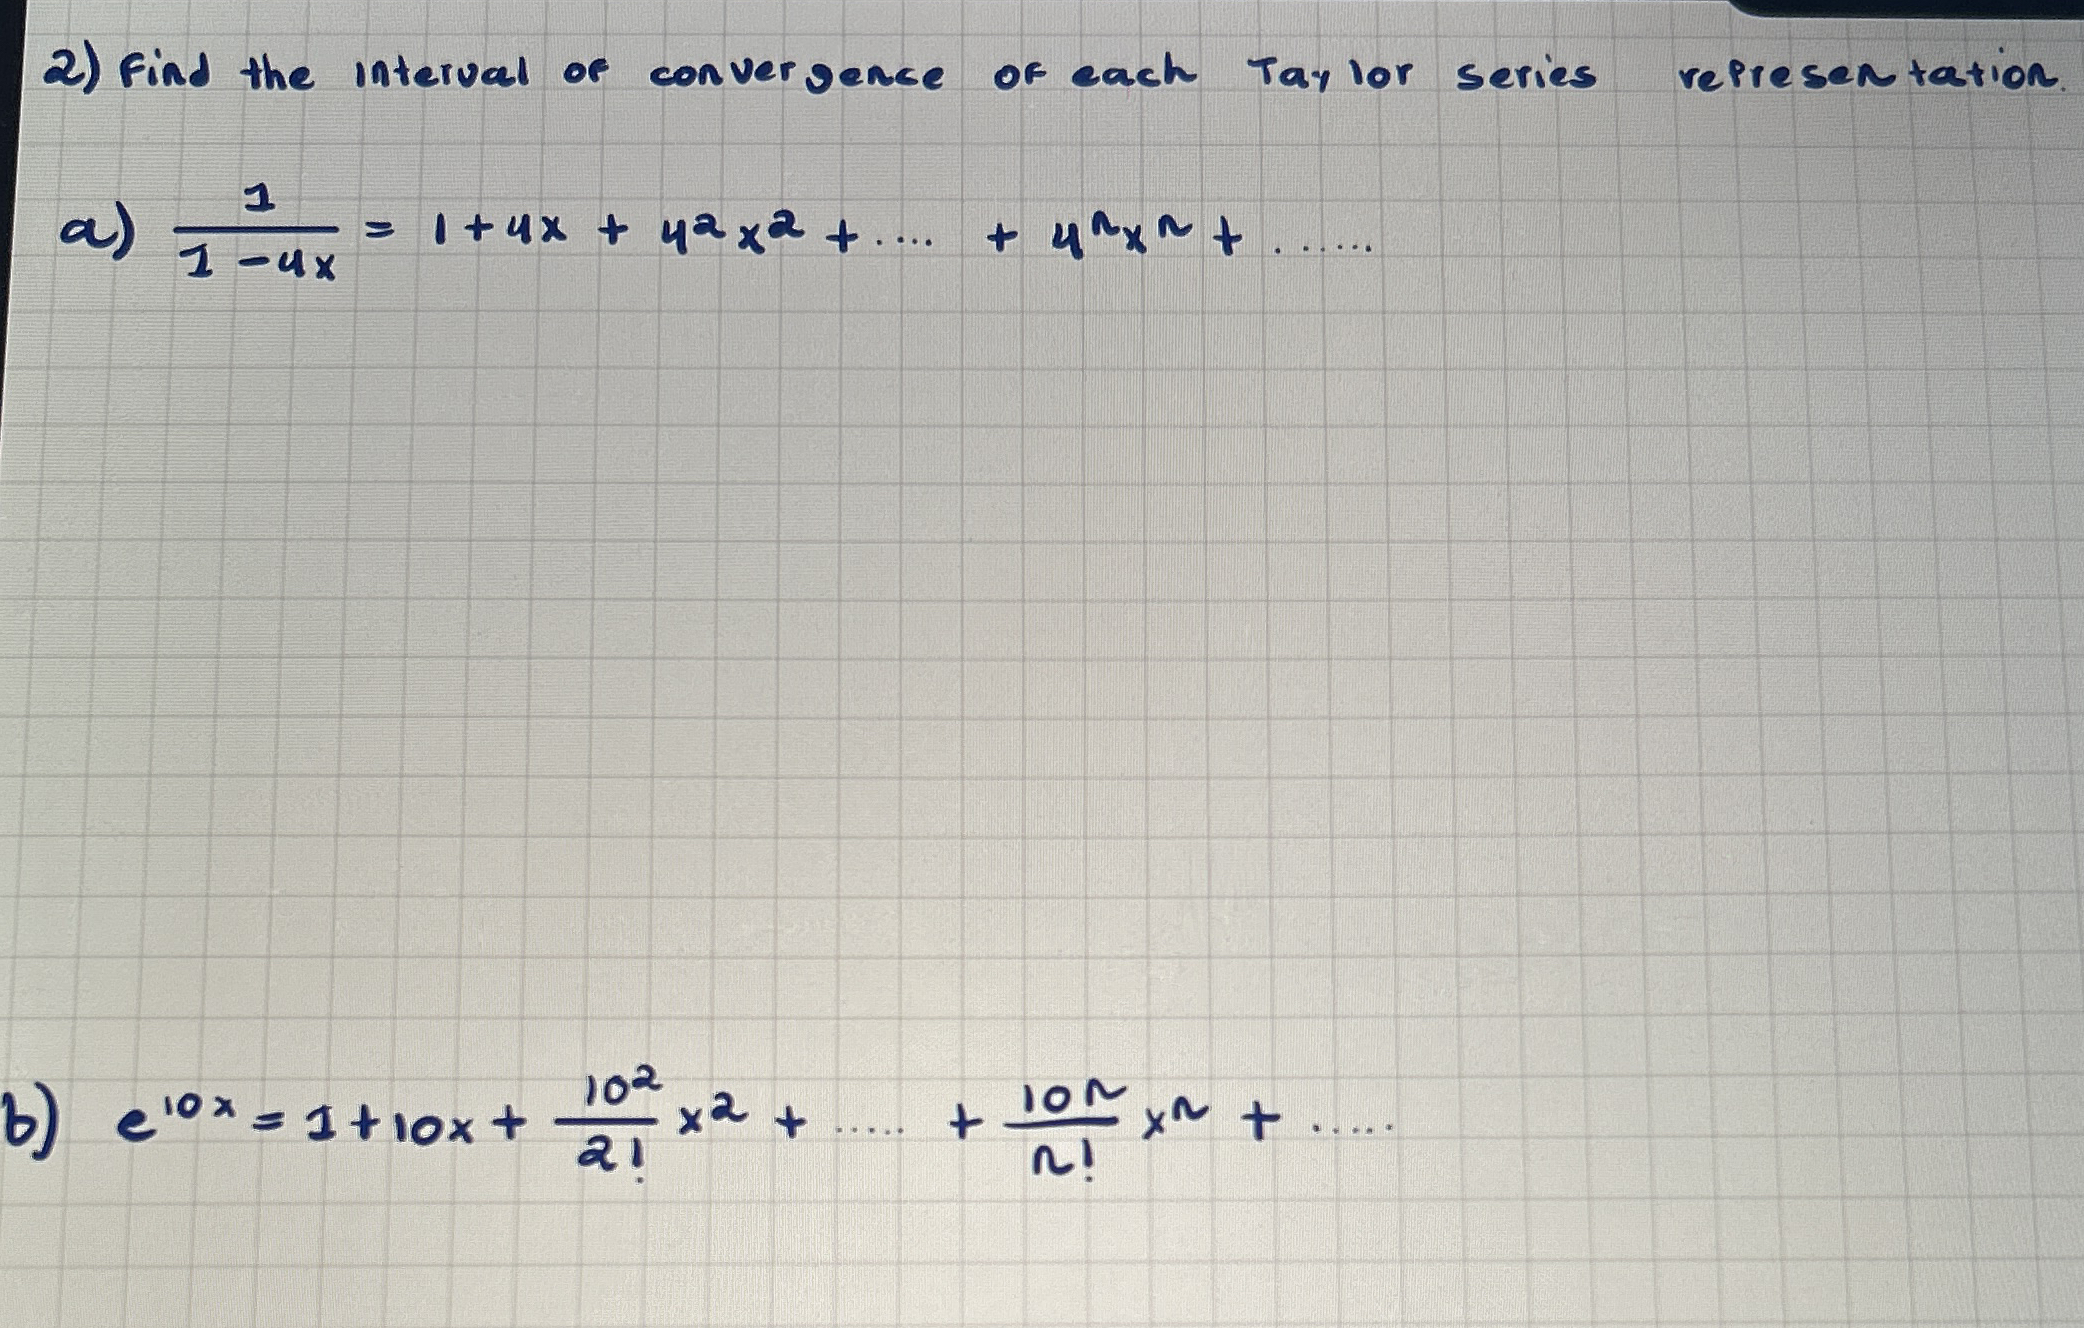 2) Find the interval of convergence of each Taylor series representation.
a) 1/(1-4x) = 1 + 4x + 4²x² + .... + 4ⁿxⁿ + ......
b) e¹⁰ˣ = 1 + 10x + 10²/2! x² + ..... + 10ⁿ/n! xⁿ + .....